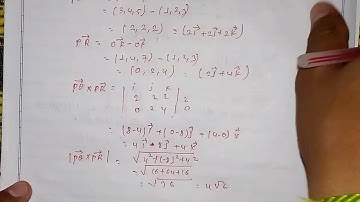 = (3,4,5) - (1,2,3)
= (2,2,2) = (2i⃗ + 2j⃗ + 2k⃗)
PR⃗ = OR⃗ - OP⃗
= (1,4,7) - (1,2,3)
= (0,2,4) = (2j⃗ + 4k⃗)
PQ⃗ × PR⃗ = | i j k |
| 2 2 2 | 2
| 0 2 4 | 0
(8-4)i⃗ + (0-8)j⃗ + (4-0)k⃗
= 4i⃗ - 8j⃗ + 4k⃗
|PQ⃗ × PR⃗| = √4²+(-8)²+4²
= √16+64+16
= √96 = 4√6